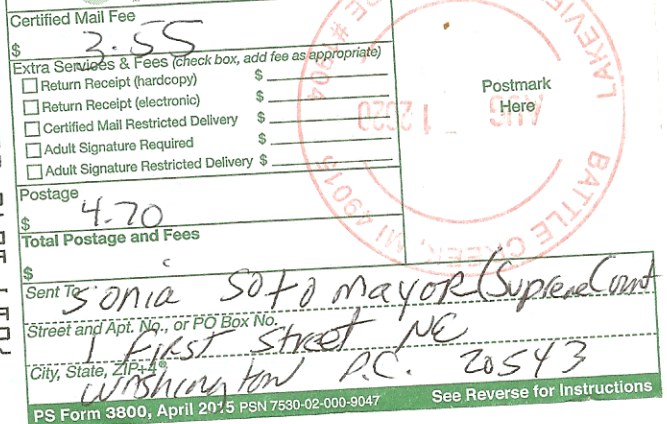 Certified Mail Fee
$ 3.55
Extra Services & Fees (check box, add fee as appropriate)
Return Receipt (hardcopy) $
Return Receipt (electronic) $
Certified Mail Restricted Delivery $
Adult Signature Required $
Adult Signature Restricted Delivery $
Postmark
Here
LAKEVIEW
AUG - 1 2020
BATTLE CREEK, MI 49015
Postage
$ 4.70
Total Postage and Fees
$
Sent To Sonia Sotomayor (Supreme Court
Street and Apt. No., or PO Box No. 1 First Street NE
City, State, ZIP+4® Washington D.C. 20543
PS Form 3800, April 2015 PSN 7530-02-000-9047 See Reverse for Instructions